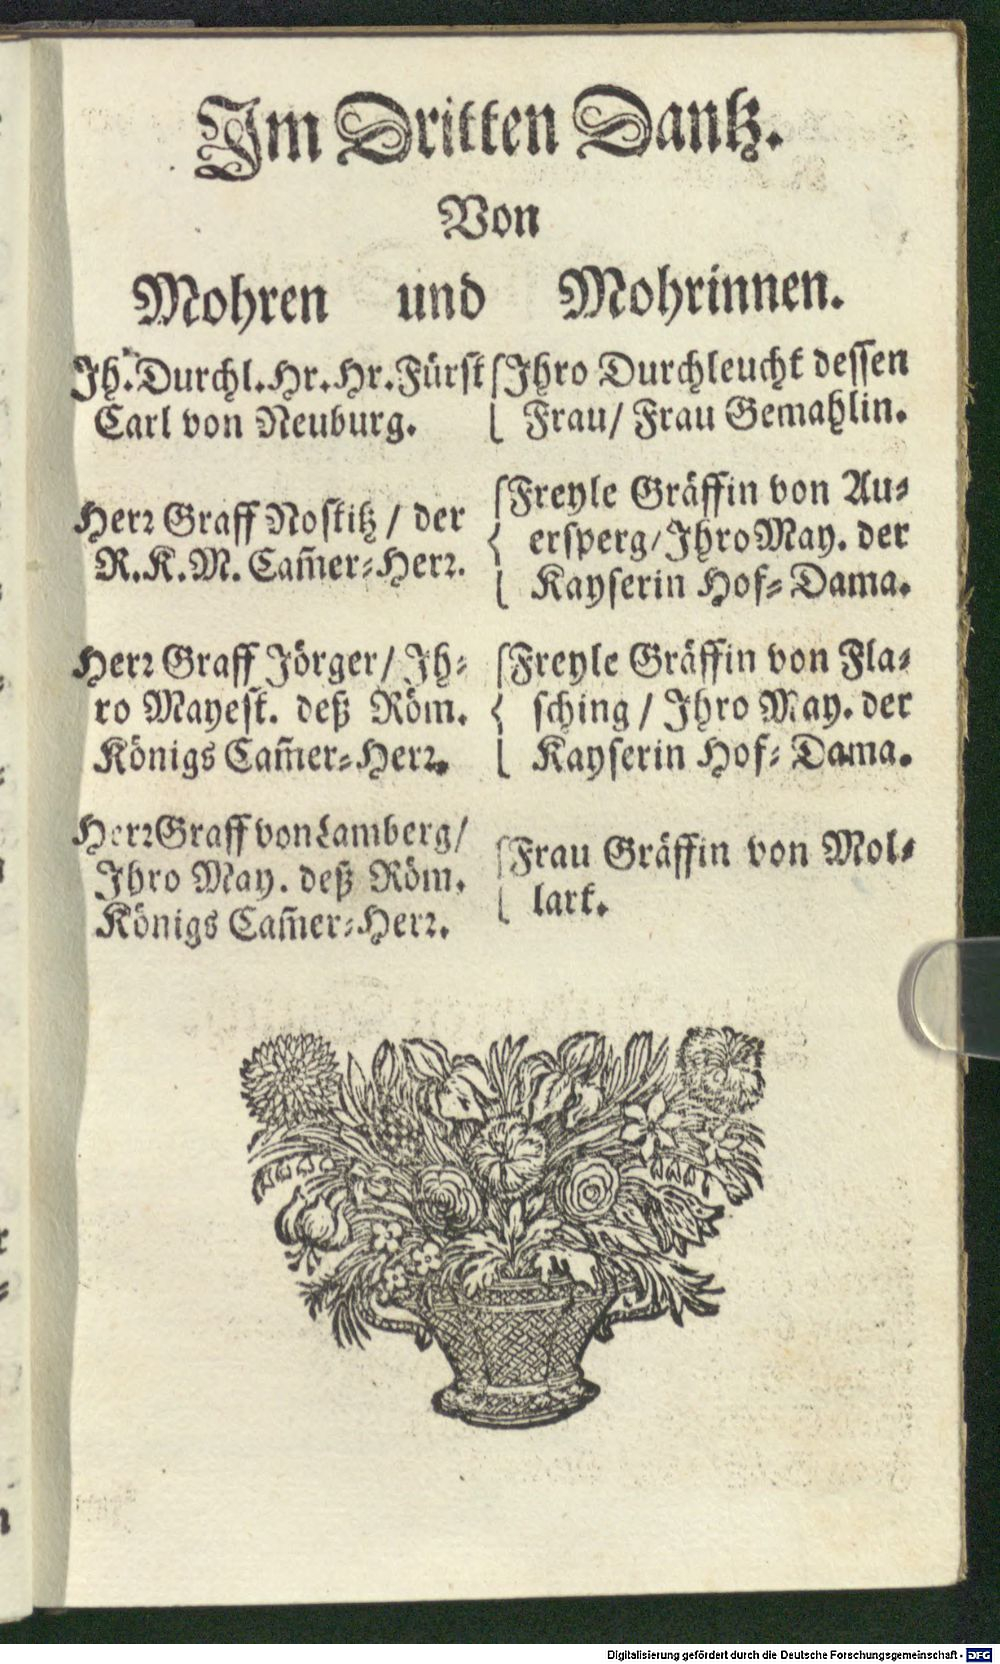 Im Dritten Dantz.
Von
Mohren und Mohrinnen.
Jh. Durchl. Hr. Hr. Fürst
Carl von Neuburg.
Jhro Durchleucht dessen
Frau/ Frau Gemahlin.
Herr Graff Nostitz / der
R. K. M. Cam̃er-Herr.
Freyle Gräffin von Au-
ersperg/ Jhro May. der
Kayserin Hof-Dama.
Herr Graff Jörger/ Jh-
ro Mayest. deß Röm.
Königs Cam̃er-Herr.
Freyle Gräffin von Fla-
sching / Jhro May. der
Kayserin Hof-Dama.
Herr Graff von Lamberg/
Jhro May. deß Röm.
Königs Cam̃er-Herr.
Frau Gräffin von Mol-
lart.
Digitalisierung gefördert durch die Deutsche Forschungsgemeinschaft - DFG